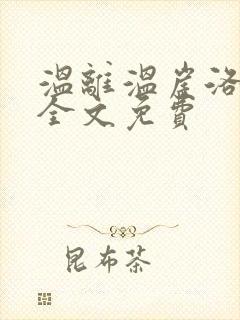 温離温崖洛
全文免費
昆布茶